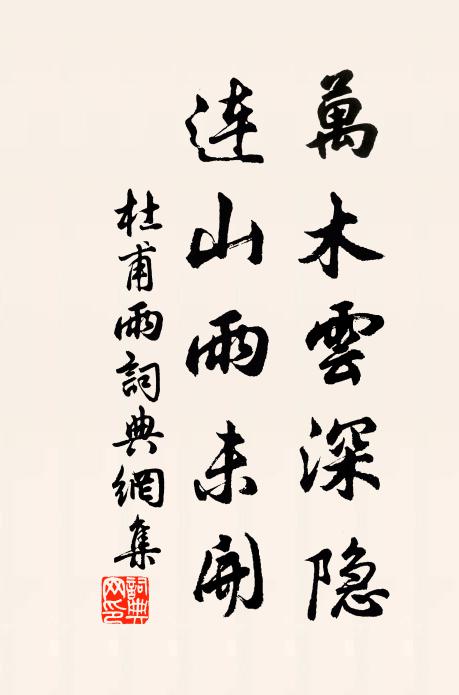 萬木雲深隐
連山雨未開
杜甫雨詞典網集
詞典网印